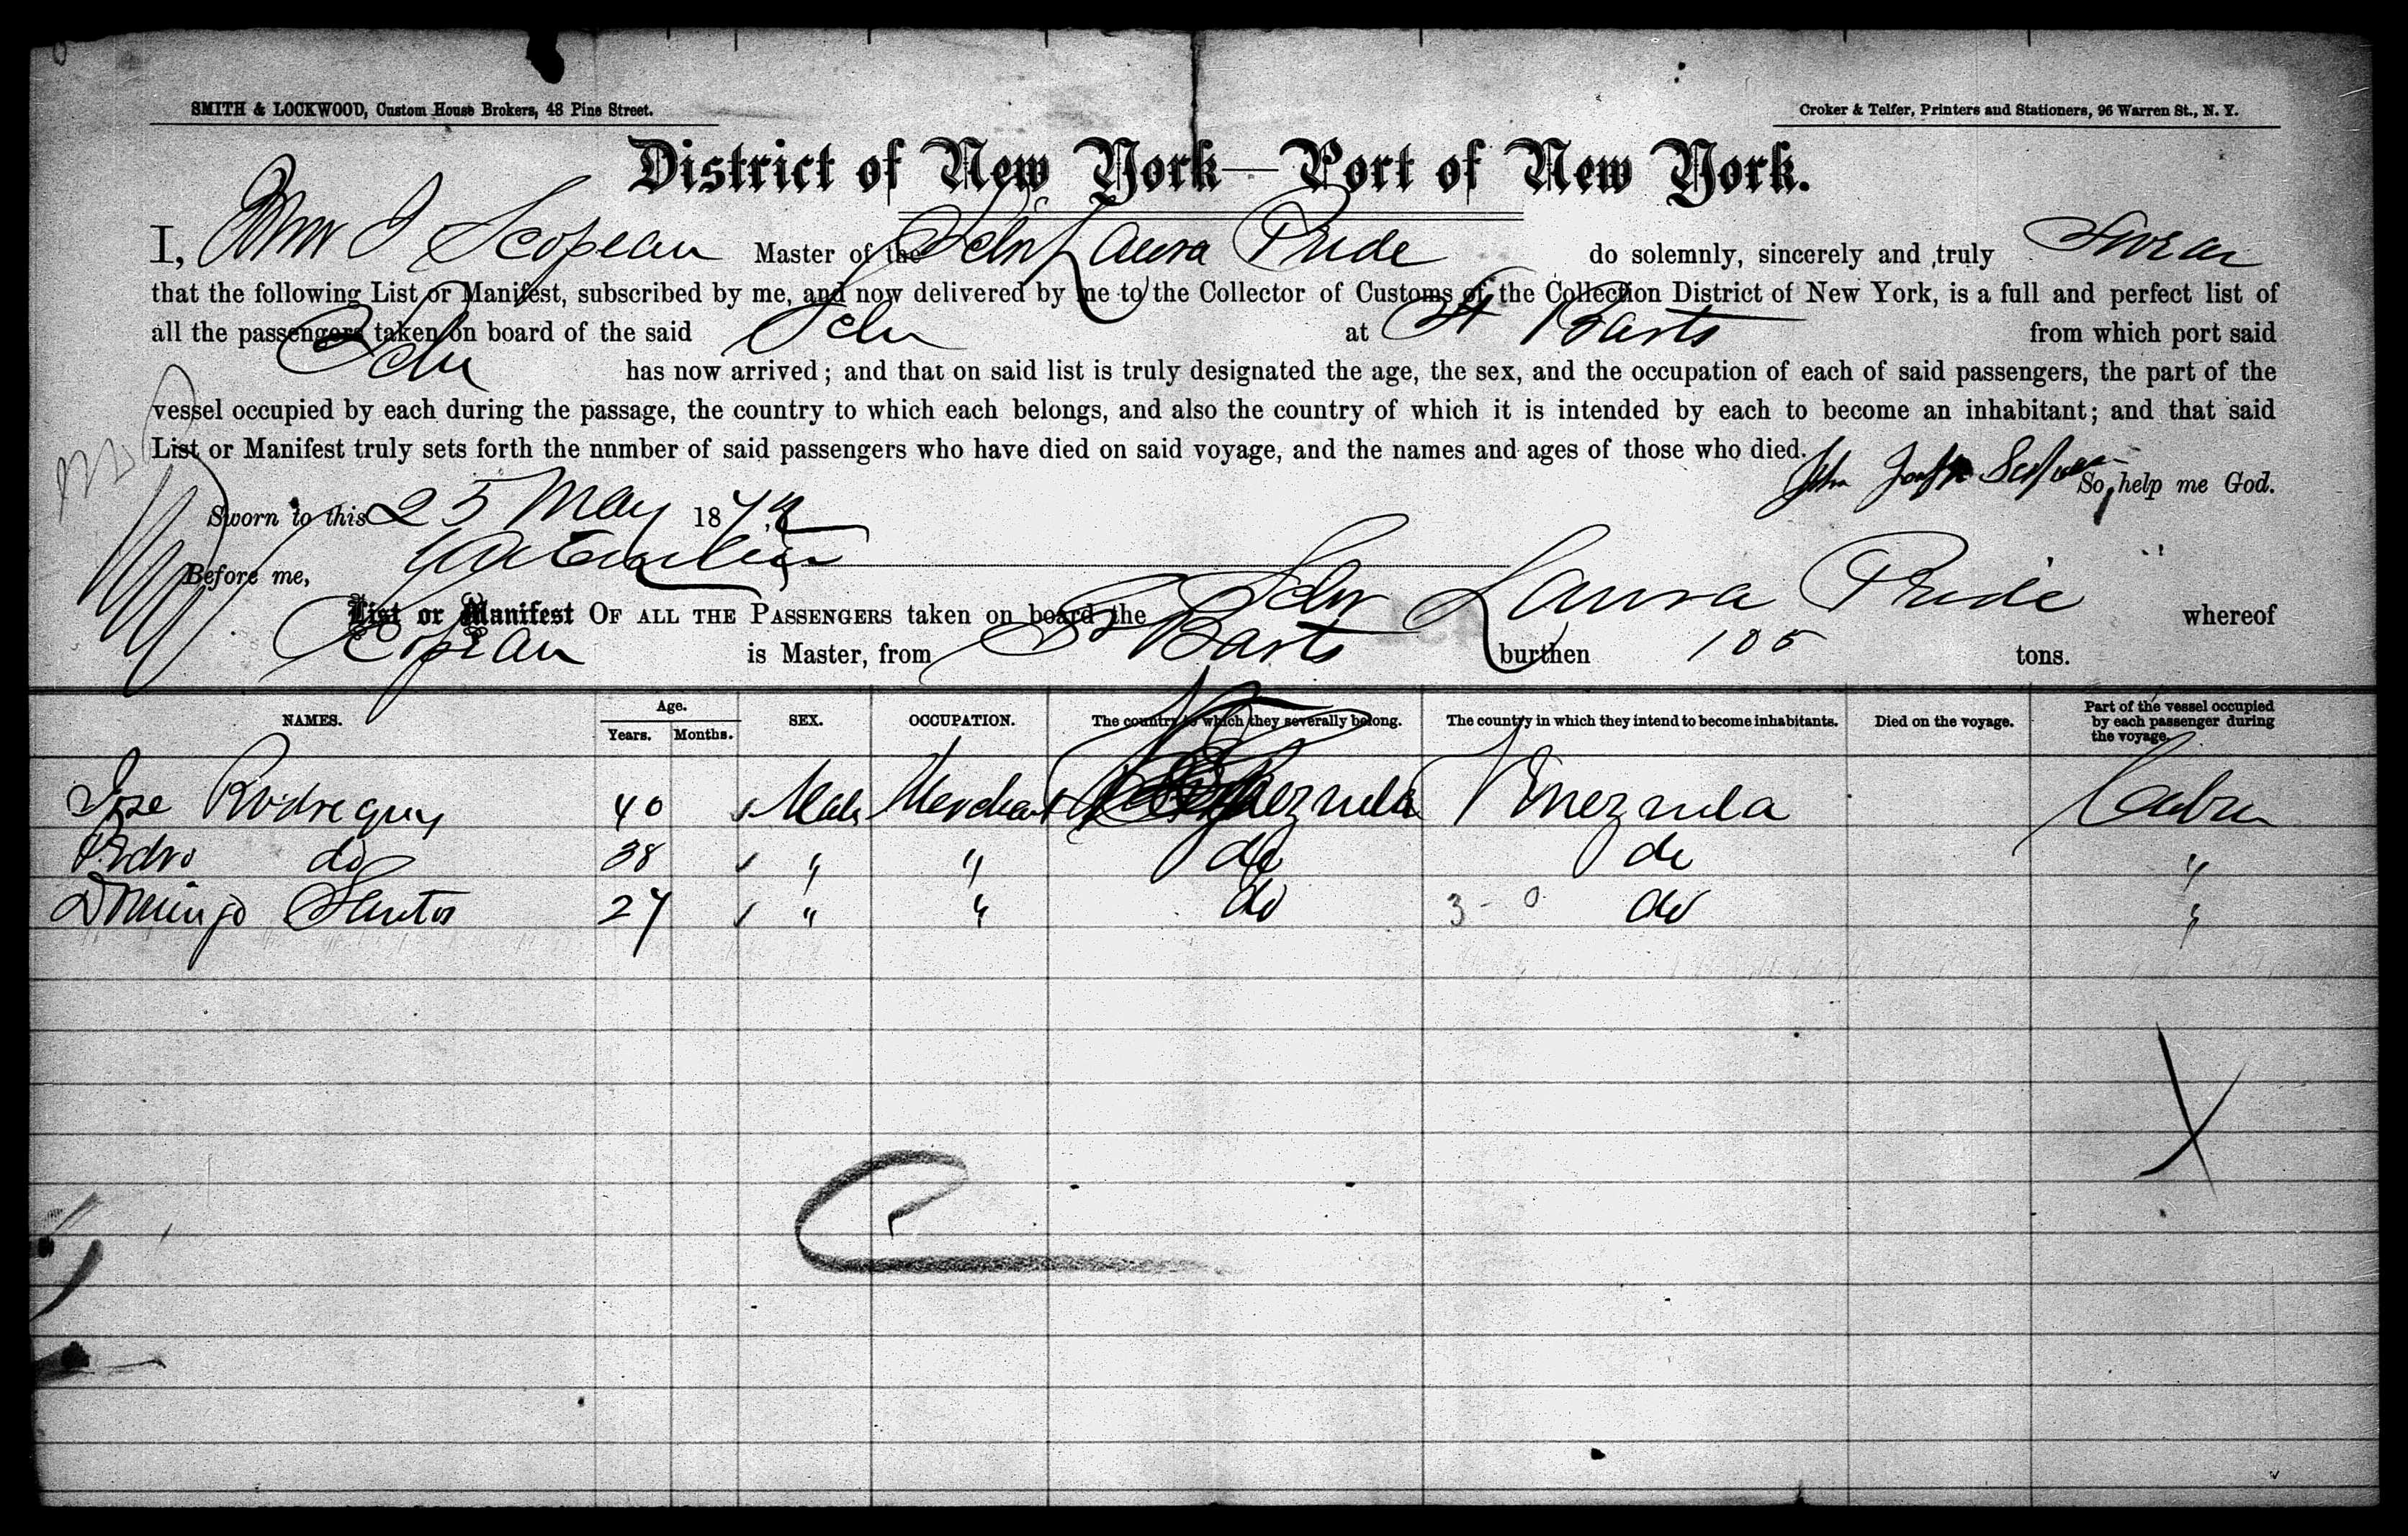 SMITH & LOCKWOOD, Custom House Brokers, 48 Pine Street.
Croker & Telfer, Printers and Stationers, 96 Warren St., N. Y.
District of New York—Port of New York.
I, J Scopean Master of the Schr Laura Pride do solemnly, sincerely and truly swear
that the following List or Manifest, subscribed by me, and now delivered by me to the Collector of Customs of the Collection District of New York, is a full and perfect list of
all the passengers taken on board of the said Schr at St Barts from which port said
Schr has now arrived; and that on said list is truly designated the age, the sex, and the occupation of each of said passengers, the part of the
vessel occupied by each during the passage, the country to which each belongs, and also the country of which it is intended by each to become an inhabitant; and that said
List or Manifest truly sets forth the number of said passengers who have died on said voyage, and the names and ages of those who died.
John So help me God.
Sworn to this 25 May 187
Before me,
List or Manifest OF ALL THE PASSENGERS taken on board the Schr Laura Pride whereof
Scopean is Master, from St Barts burthen 105 tons.
NAMES. Age. Years. Months. SEX. OCCUPATION. The country to which they severally belong. The country in which they intend to become inhabitants. Died on the voyage. Part of the vessel occupied by each passenger during the voyage.
Jose Rodreguez 40 Male Merchant Venezuela Cabin
Pedro do 38 " " do do "
Domingo Santos 27 " " do 3 - 0 do "